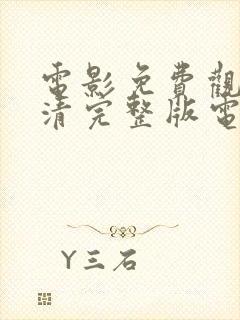 電影免費觀
清完整版電
Y三石